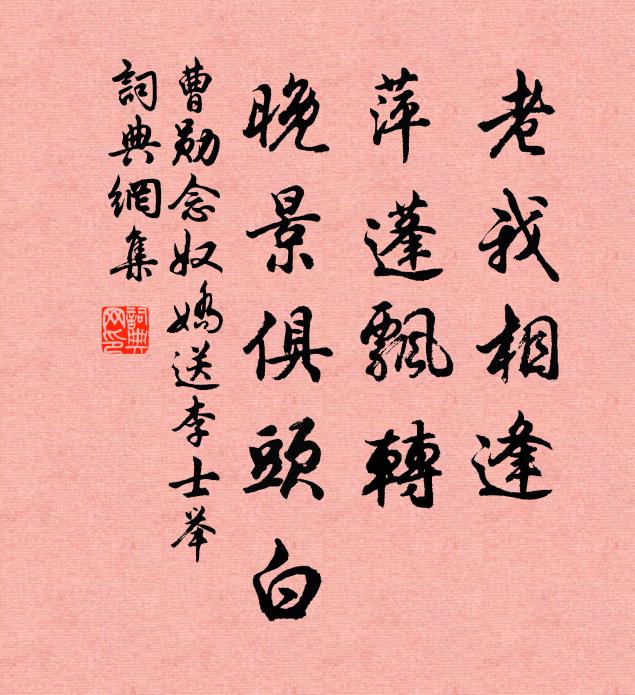 老我相逢
萍蓬飄轉
晚景俱頭白
曹勛念奴嬌送李士举
詞典網集
詞典网印